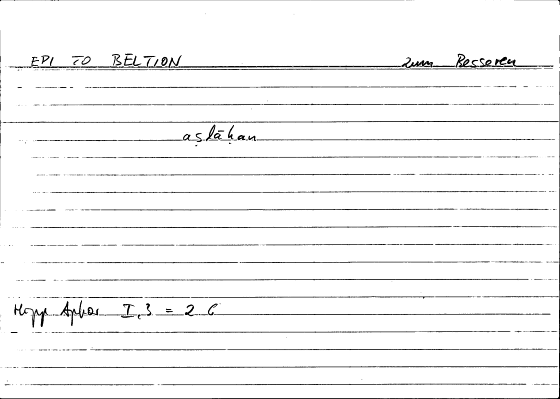 EPI TO BELTION zum Besseren
aṣlāḥan
Hipp Aphor I,3 = 2 6